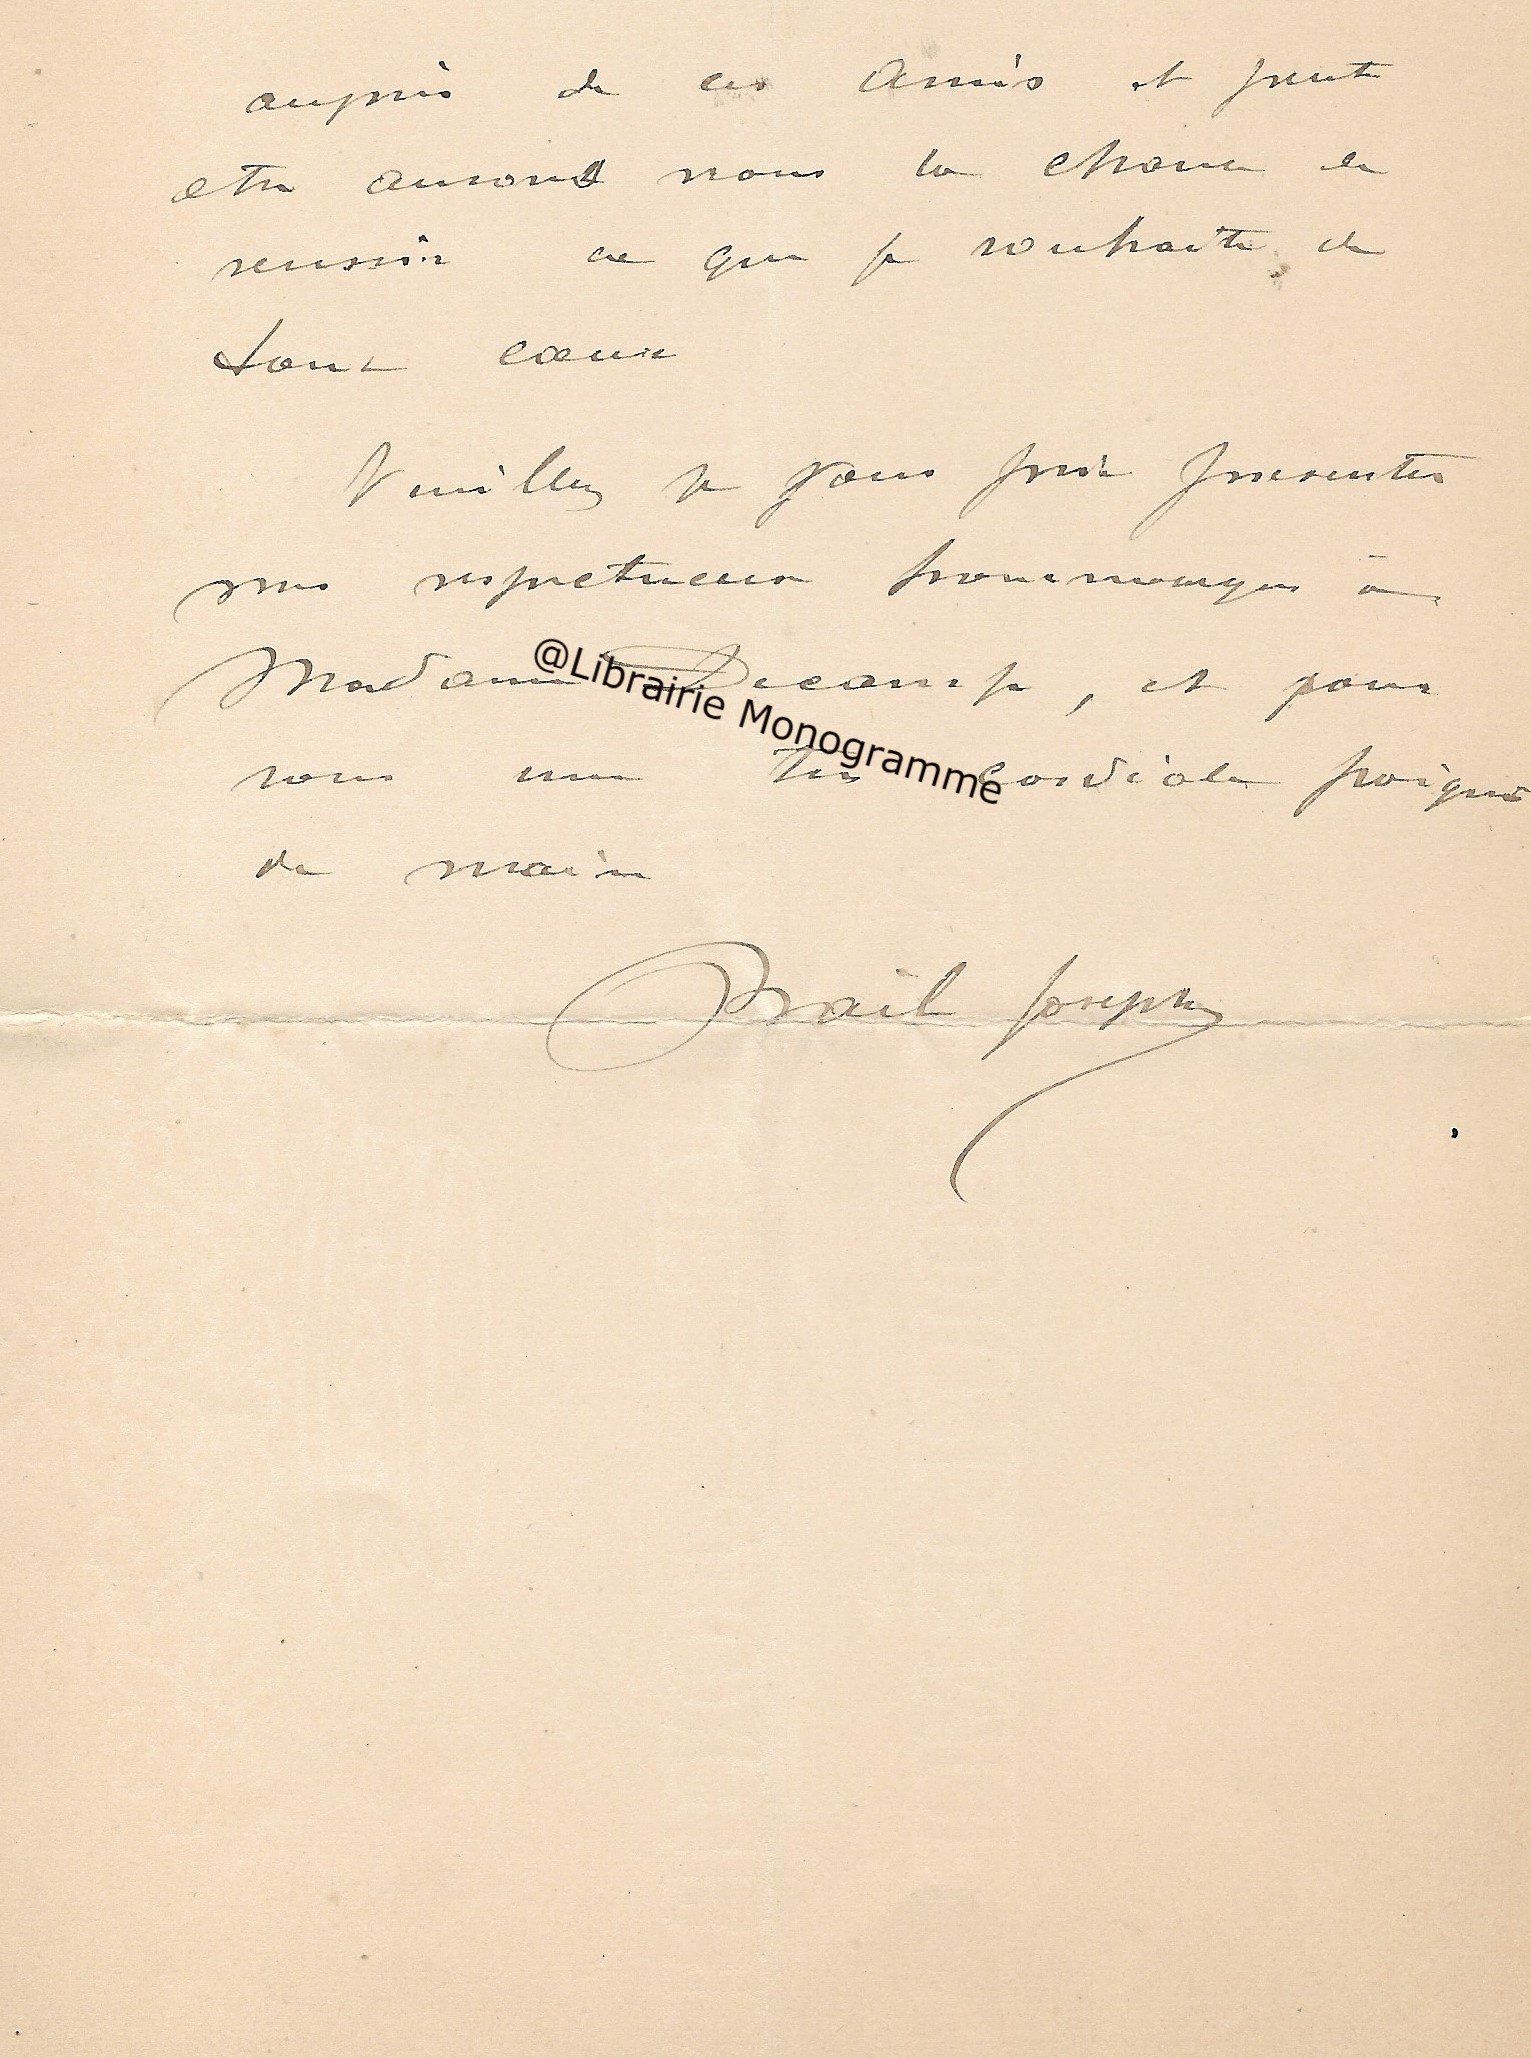 auprès de ces Amis et peut
etre aurons nous la chance de
reussir ce que je souhaite de
tout cœur
Veuillez je vous prie presenter
mes respectueux hommages à
Madame Decamp, et pour
vous une très cordiale poignée
de main
@Librairie Monogramme
Bail Joseph